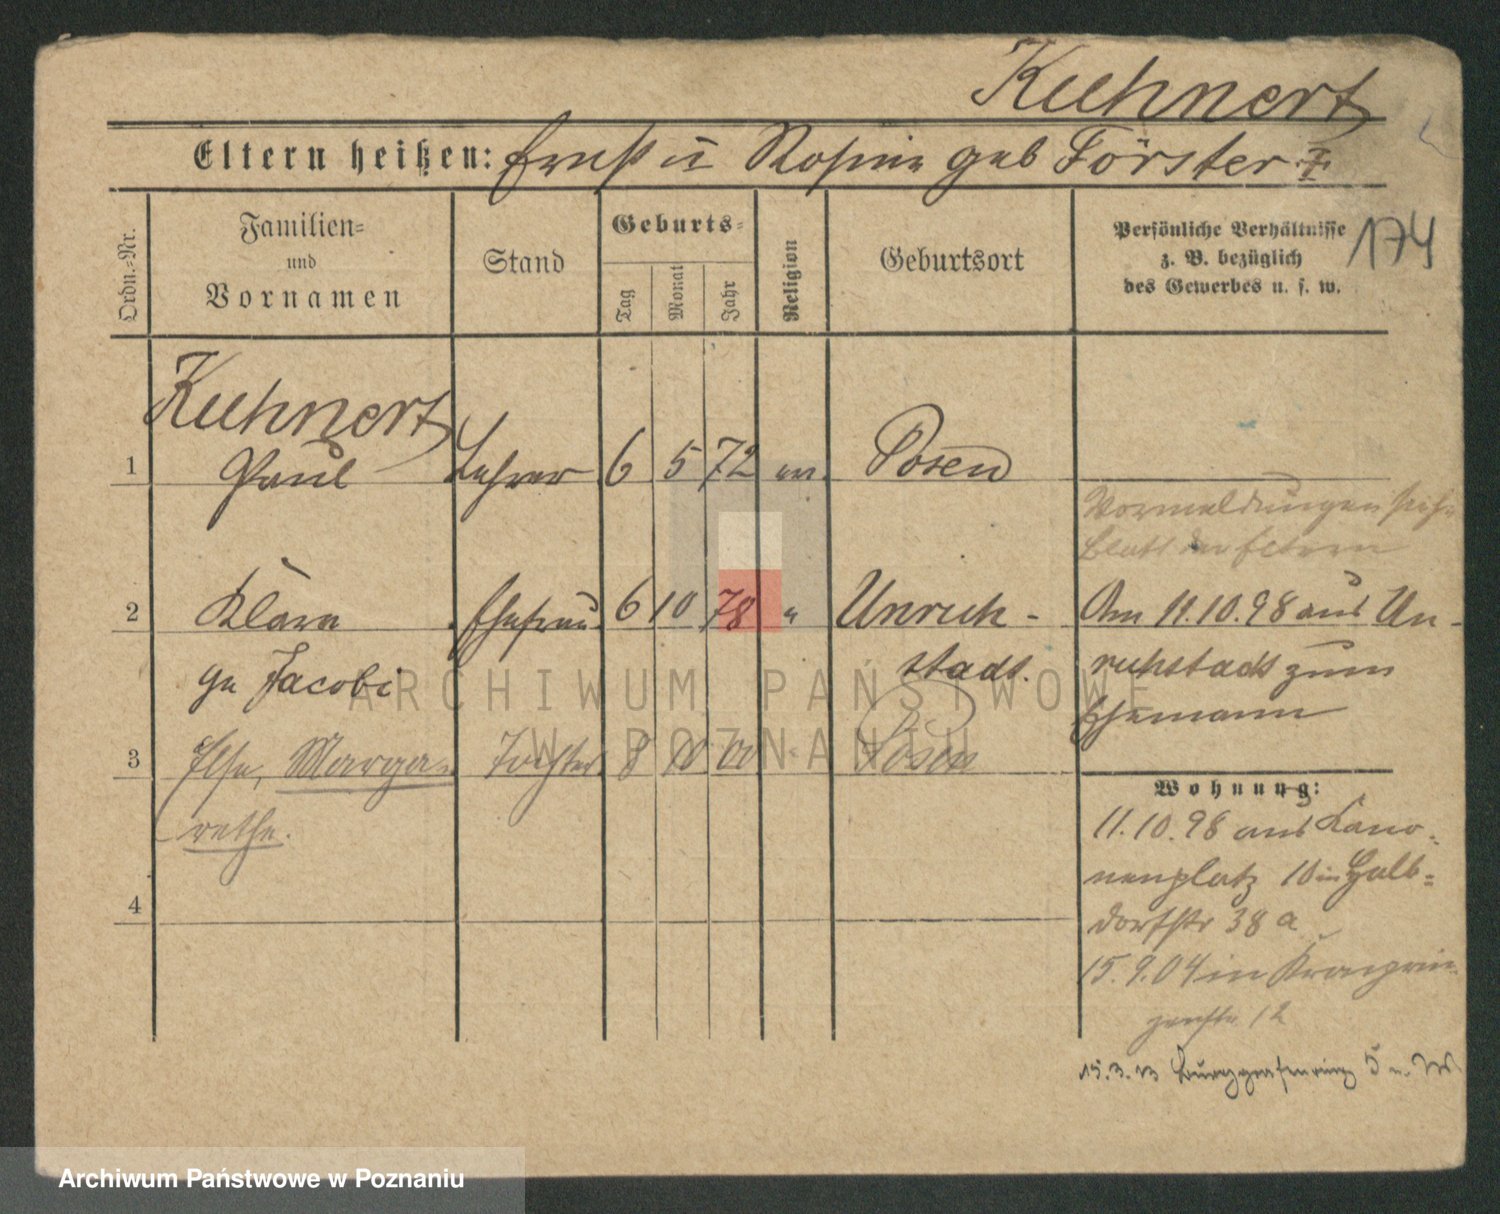 Kuhnert
Eltern heißen: Ernst u Rosine geb Förster
174
Ordn.-Nr.
Familien-
und
Vornamen
Stand
Geburts-
Tag
Monat
Jahr
Religion
Geburtsort
Persönliche Verhältnisse
z. B. bezüglich
des Gewerbes u. s. w.
Kuhnert
1 Paul Lehrer 6 5 72 ev. Posen
Vormeldungen siehe
Blatt der Eltern
2 Klara Ehefrau 6 10 78 " Unruh-
ge Jacobi stadt.
Am 11.10.98 aus Un-
ruhstadt zum
Ehemann
3 Else, Marga- Tochter 8 10 00 " Posen
rethe.
4
Wohnung:
11.10.98 aus Kano-
nenplatz 10 in Halb-
dorfstr 38 a
15.9.04 in Kronprin-
zenstr 12
15.3.13 Burggrafenring 5
ARCHIWUM PAŃSTWOWE
W POZNANIU
Archiwum Państwowe w Poznaniu